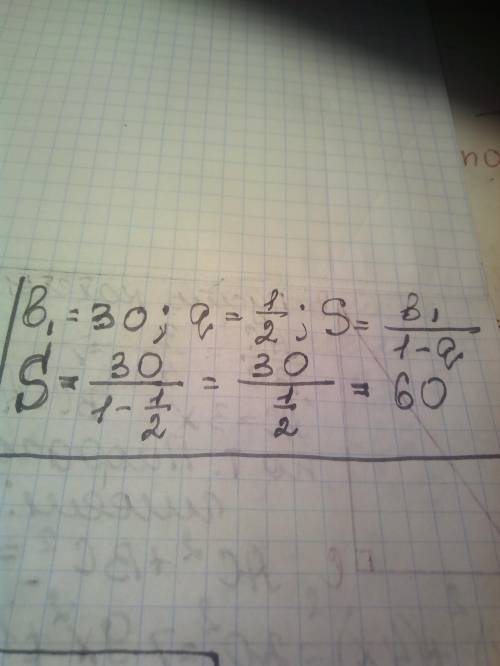 b₁ = 30; q = 1/2; S = b₁/(1-q)
S = 30/(1-1/2) = 30/(1/2) = 60